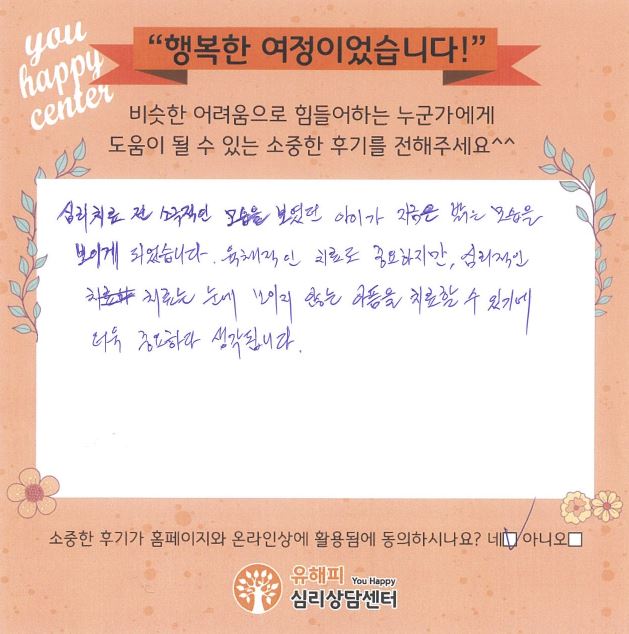 you
happy
center
“행복한 여정이었습니다!”
비슷한 어려움으로 힘들어하는 누군가에게
도움이 될 수 있는 소중한 후기를 전해주세요^^
심리치료 전 소극적인 모습을 보였던 아이가 지금은 밝은 모습을
보이게 되었습니다. 육체적인 치료도 중요하지만, 심리적인
치료는 눈에 보이지 않는 아픔을 치료할 수 있기에
더욱 중요하다 생각됩니다.
소중한 후기가 홈페이지와 온라인상에 활용됨에 동의하시나요? 네☑ 아니오☐
유해피 You Happy
심리상담센터